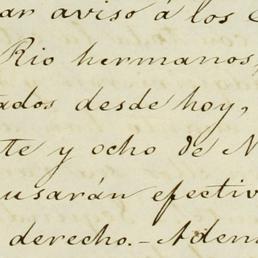 ar aviso á los
Rio hermanos,
tados desde hoy,
te y ocho de N
usarán efectiv
derecho.- Adem